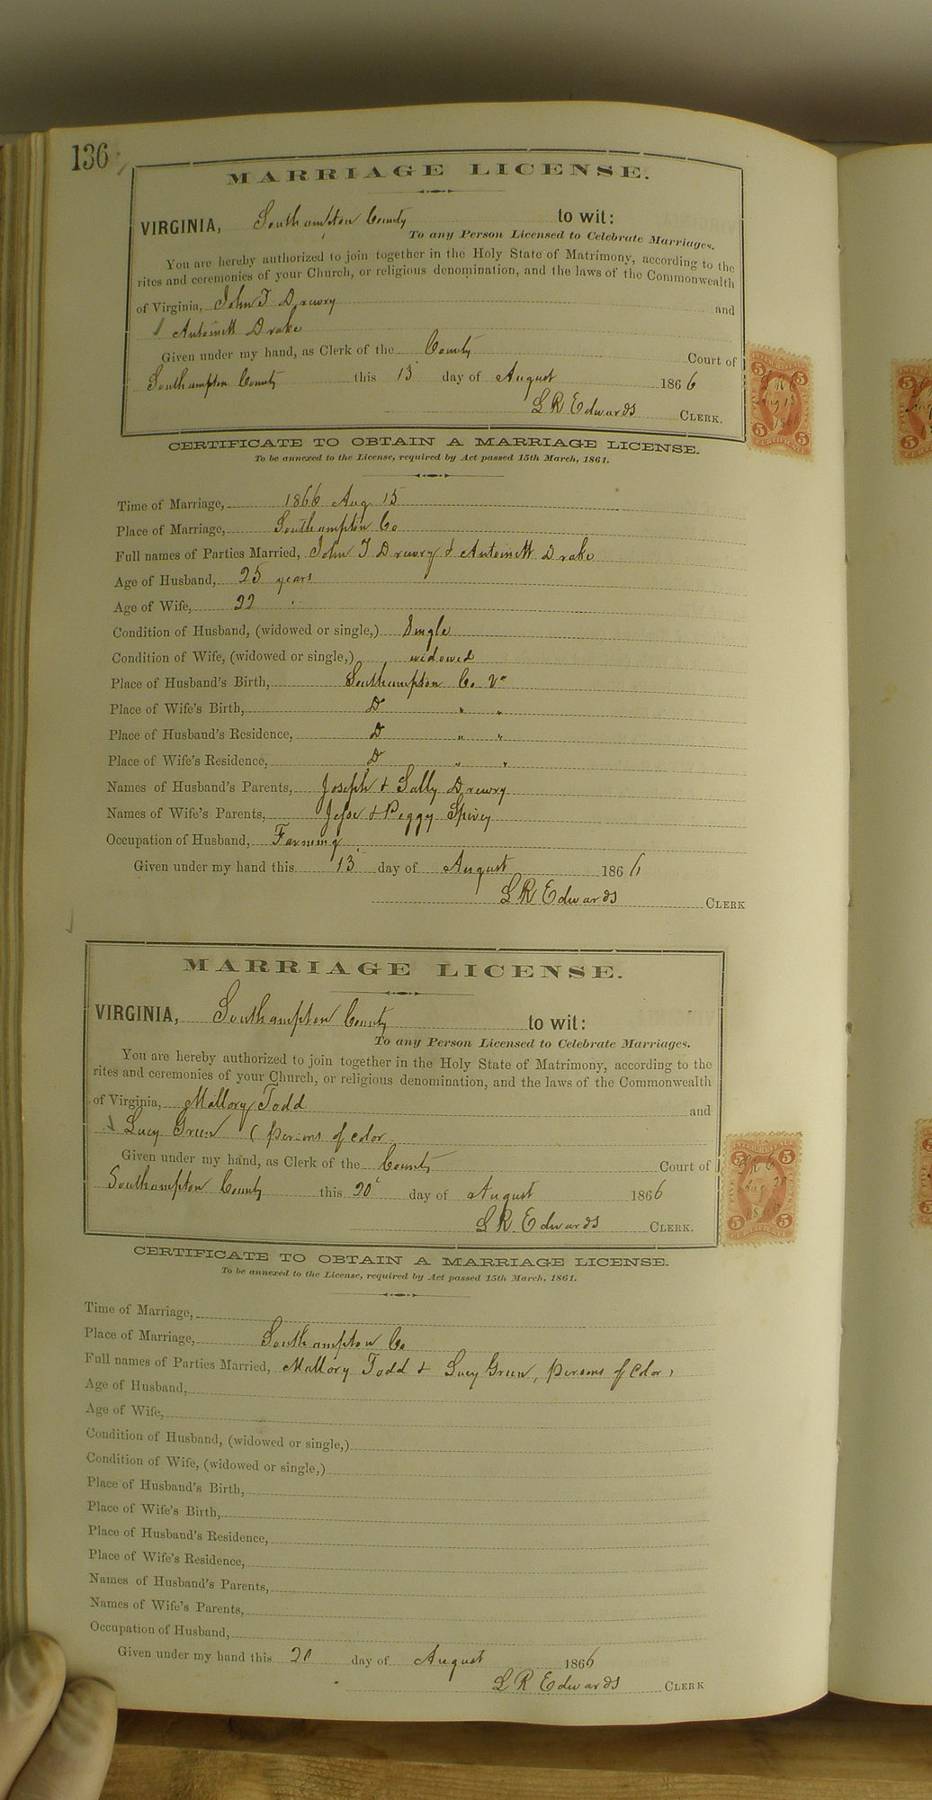 136
MARRIAGE LICENSE.
VIRGINIA, Southampton County to wit:
To any Person Licensed to Celebrate Marriages.
You are hereby authorized to join together in the Holy State of Matrimony, according to the
rites and ceremonies of your Church, or religious denomination, and the laws of the Commonwealth
of Virginia, John T Drewry and
Antoinett Drake
Given under my hand, as Clerk of the County Court of
Southampton County this 13 day of August 1866
L R Edwards CLERK.
CERTIFICATE TO OBTAIN A MARRIAGE LICENSE.
To be annexed to the License, required by Act passed 15th March, 1861.
Time of Marriage, 1866 Aug 15
Place of Marriage, Southampton Co
Full names of Parties Married, John T Drewry & Antoinett Drake
Age of Husband, 25 years
Age of Wife, 22 "
Condition of Husband, (widowed or single,) Single
Condition of Wife, (widowed or single,) widowed
Place of Husband's Birth, Southampton Co Va
Place of Wife's Birth, D " "
Place of Husband's Residence, D " "
Place of Wife's Residence, D " "
Names of Husband's Parents, Joseph & Sally Drewry
Names of Wife's Parents, Jesse & Peggy Spivey
Occupation of Husband, Farming
Given under my hand this 13 day of August 1866
L R Edwards CLERK
MARRIAGE LICENSE.
VIRGINIA, Southampton County to wit:
To any Person Licensed to Celebrate Marriages.
You are hereby authorized to join together in the Holy State of Matrimony, according to the
rites and ceremonies of your Church, or religious denomination, and the laws of the Commonwealth
of Virginia, Mallory Todd and
Lucy Green (persons of color
Given under my hand, as Clerk of the County Court of
Southampton County this 20 day of August 1866
L R Edwards CLERK.
CERTIFICATE TO OBTAIN A MARRIAGE LICENSE.
To be annexed to the License, required by Act passed 15th March, 1861.
Time of Marriage,
Place of Marriage, Southampton Co
Full names of Parties Married, Mallory Todd & Lucy Green, persons of Color,
Age of Husband,
Age of Wife,
Condition of Husband, (widowed or single,)
Condition of Wife, (widowed or single,)
Place of Husband's Birth,
Place of Wife's Birth,
Place of Husband's Residence,
Place of Wife's Residence,
Names of Husband's Parents,
Names of Wife's Parents,
Occupation of Husband,
Given under my hand this 20 day of August 1866
L R Edwards CLERK